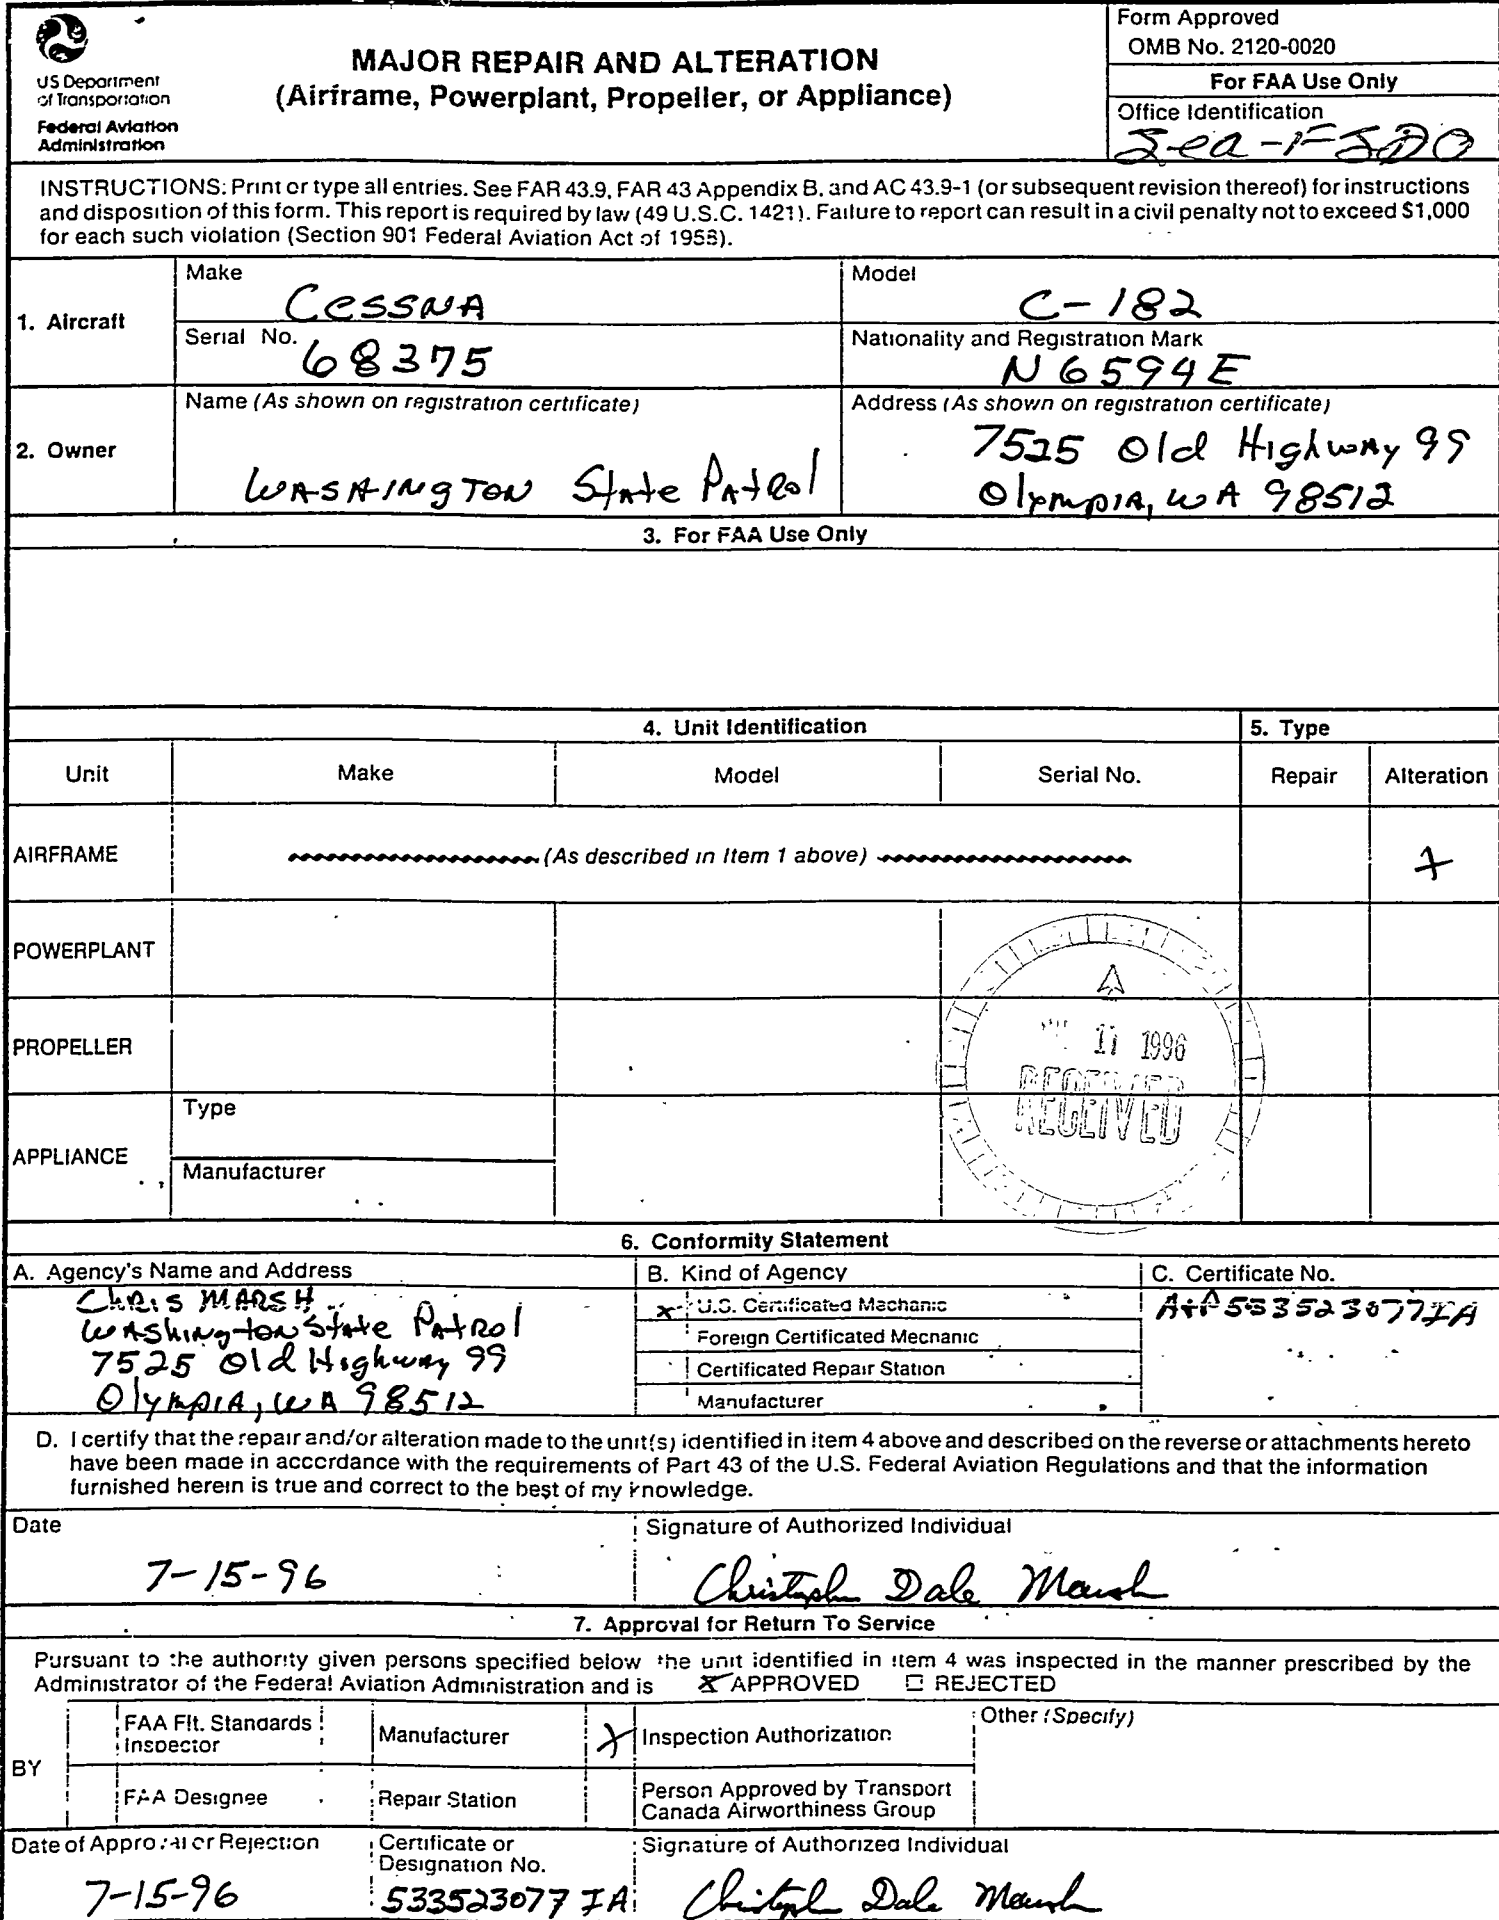 US Department
of Transportation
Federal Aviation
Administration
MAJOR REPAIR AND ALTERATION
(Airframe, Powerplant, Propeller, or Appliance)
Form Approved
OMB No. 2120-0020
For FAA Use Only
Office Identification
Sea-FSDO
INSTRUCTIONS: Print or type all entries. See FAR 43.9, FAR 43 Appendix B, and AC 43.9-1 (or subsequent revision thereof) for instructions
and disposition of this form. This report is required by law (49 U.S.C. 1421). Failure to report can result in a civil penalty not to exceed $1,000
for each such violation (Section 901 Federal Aviation Act of 1958).
1. Aircraft
Make
Cessna
Model
C-182
Serial No.
68375
Nationality and Registration Mark
N6594E
2. Owner
Name (As shown on registration certificate)
Washington State Patrol
Address (As shown on registration certificate)
7525 Old Highway 99
Olympia, WA 98512
3. For FAA Use Only
4. Unit Identification
5. Type
Unit
Make
Model
Serial No.
Repair
Alteration
AIRFRAME
(As described in Item 1 above)
X
POWERPLANT
PROPELLER
17 1996
RECEIVED
APPLIANCE
Type
Manufacturer
6. Conformity Statement
A. Agency's Name and Address
Chris Marsh
Washington State Patrol
7525 Old Highway 99
Olympia, WA 98512
B. Kind of Agency
X U.S. Certificated Mechanic
Foreign Certificated Mechanic
Certificated Repair Station
Manufacturer
C. Certificate No.
A+P 533523077IA
D. I certify that the repair and/or alteration made to the unit(s) identified in item 4 above and described on the reverse or attachments hereto
have been made in accordance with the requirements of Part 43 of the U.S. Federal Aviation Regulations and that the information
furnished herein is true and correct to the best of my knowledge.
Date
7-15-96
Signature of Authorized Individual
Christoph Dale Marsh
7. Approval for Return To Service
Pursuant to the authority given persons specified below the unit identified in item 4 was inspected in the manner prescribed by the
Administrator of the Federal Aviation Administration and is X APPROVED □ REJECTED
BY
FAA Flt. Standards
Inspector
Manufacturer
X
Inspection Authorization
Other (Specify)
FAA Designee
Repair Station
Person Approved by Transport
Canada Airworthiness Group
Date of Approval or Rejection
7-15-96
Certificate or
Designation No.
533523077 IA
Signature of Authorized Individual
Christoph Dale Marsh